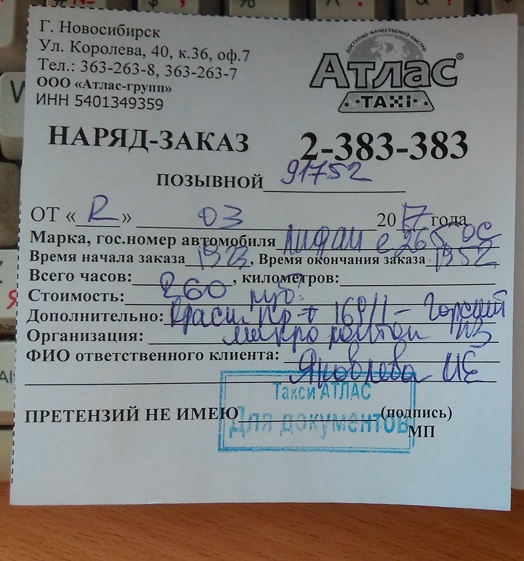 Г. Новосибирск
Ул. Королева, 40, к.36, оф.7
Тел.: 363-263-8, 363-263-7
ООО «Атлас-групп»
ИНН 5401349359
ДОСТУПНО-КАЧЕСТВЕННО-БЫСТРО
Атлас®
TAXi
НАРЯД-ЗАКАЗ 2-383-383
ПОЗЫВНОЙ 91752
ОТ « » 03 2017 года
Марка, гос.номер автомобиля Лифан е 265 ос
Время начала заказа , Время окончания заказа 1952
Всего часов: , километров:
Стоимость: 260 руб.
Дополнительно: Красн. пр-т 169/1 - Горский
Организация: микрорайон
ФИО ответственного клиента: Яковлева ИЕ
Такси АТЛАС
Для документов
ПРЕТЕНЗИЙ НЕ ИМЕЮ (подпись)
МП